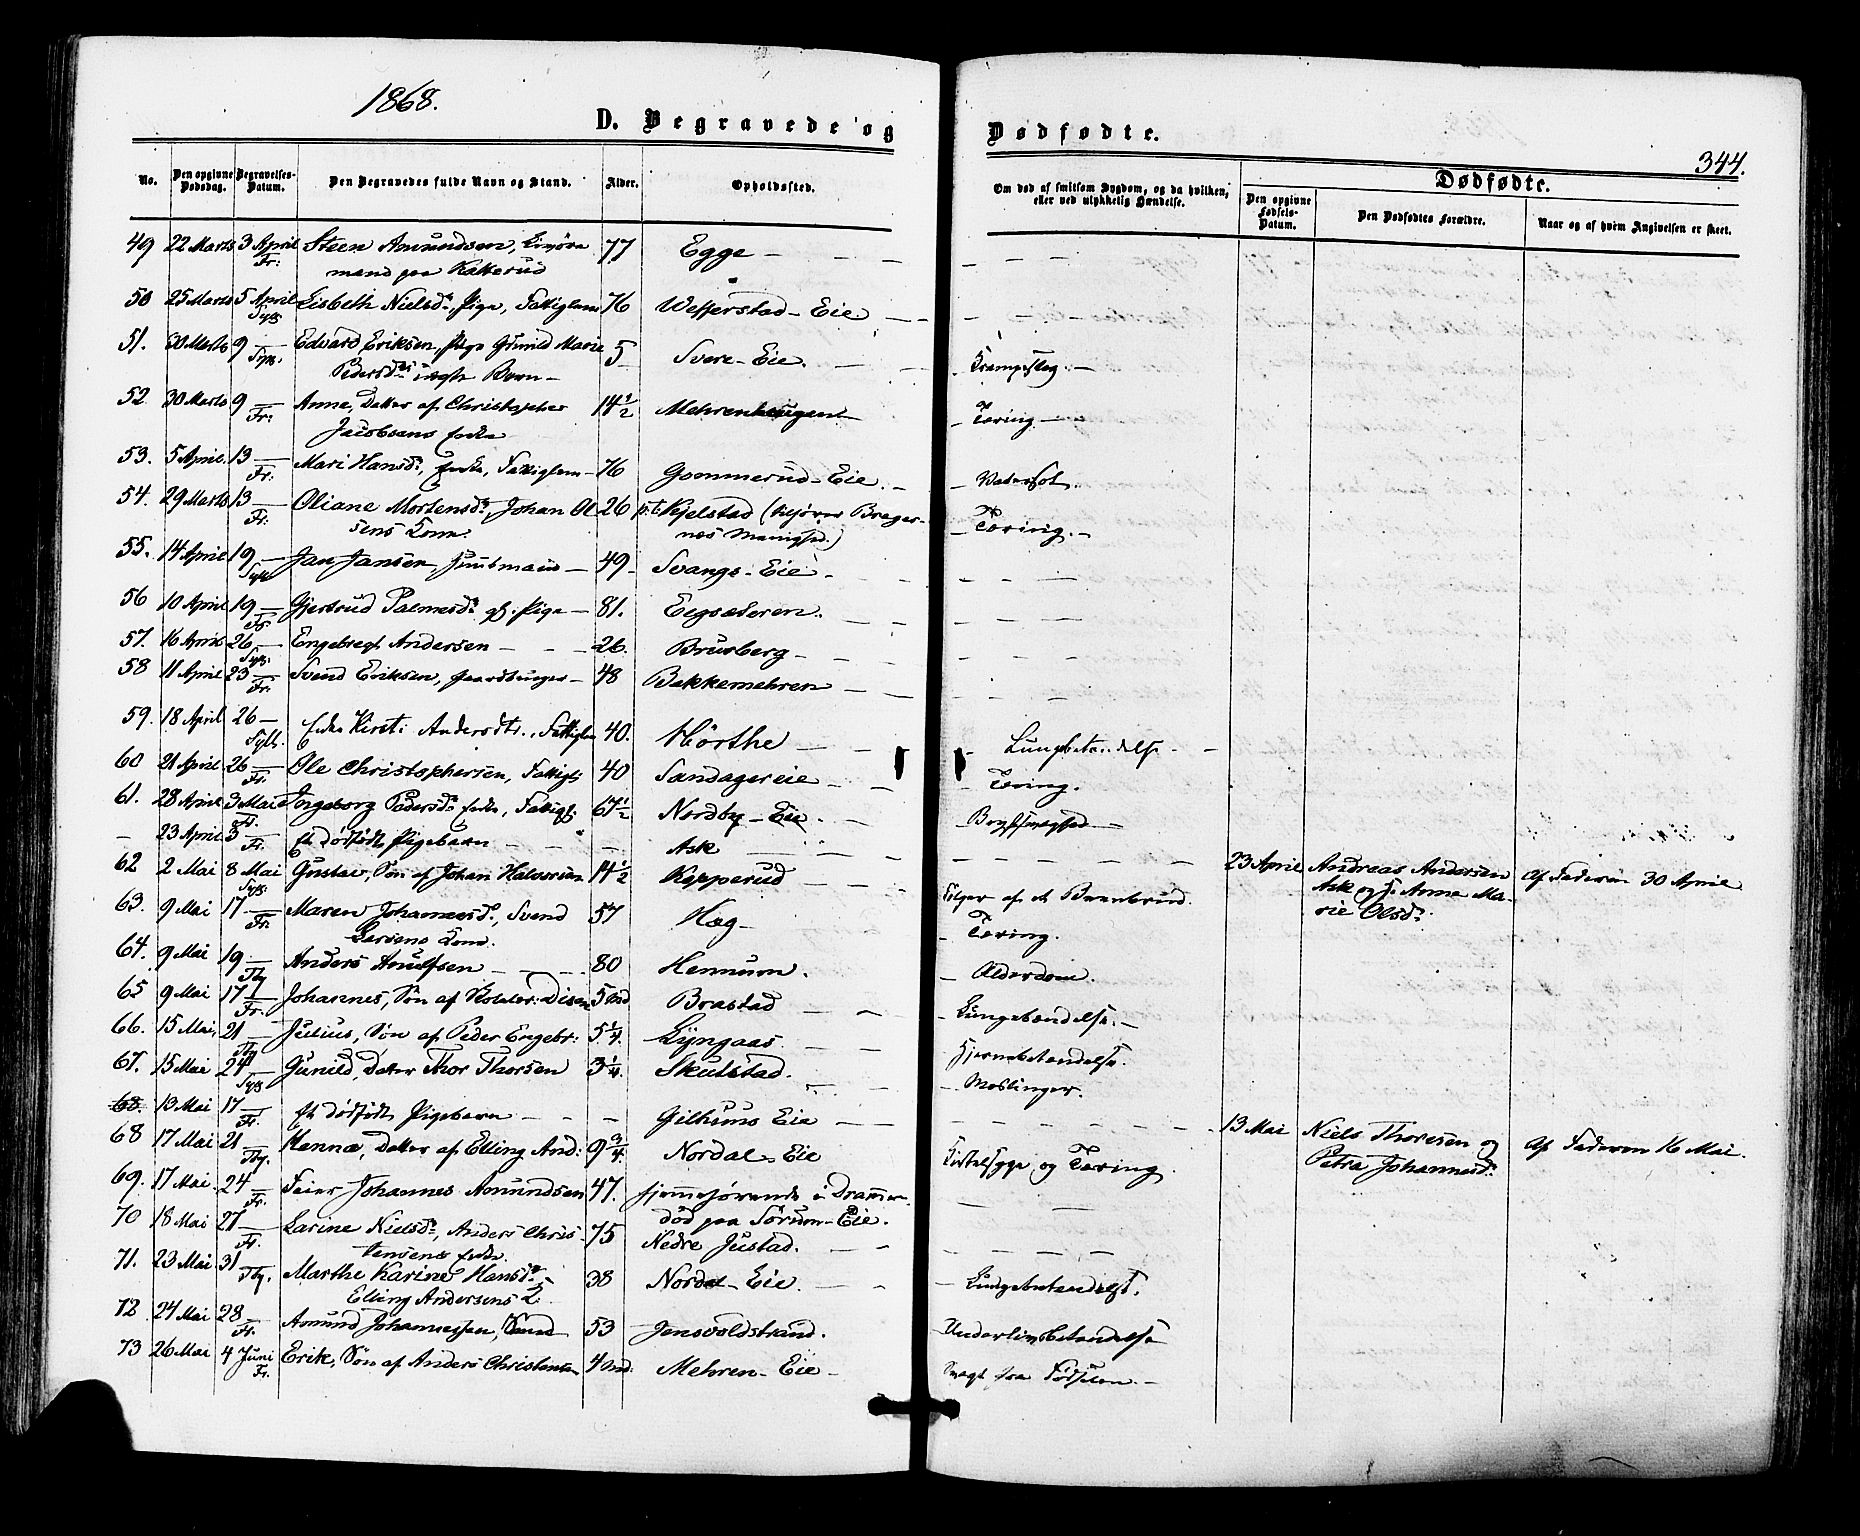 1868.
D. Begravede og Dødfødte.
344.
No.
Den opgivne Dødsdag.
Begravelses-Datum.
Den Begravedes fulde Navn og Stand.
Alder.
Opholdssted.
Om død af smitsom Sygdom, og da hvilken, eller ved ulykkelig Hændelse.
Dødfødte.
Den opgivne Fødsels-Datum.
Den Dødfødtes Forældre.
Naar og af hvem Angivelsen er skeet.
49 22 Marts 3 April Fr: Steen Amundsen, 77 Egge
mand paa Katterud
50 25 Marts 5 April Sylg Lisbeth Nielsd:, Pige, Fattiglem 76 Wefferstad-Eie
51. 30 Marts 9 Sylg. Edvard Eriksen, Pige Gunild Marie 5 Svere-Eie. Krampeslag.
Pedersd: uægte Barn
52 30 Marts 9 Fr: Anne, Datter af Christopher 14 1/2 Mehrenhaugen Tæring
Jacobsens Enke
53. 5 April 13 Fr: Mari Hansd:, Enke, Fattiglem 76 Gommerud-Eie. Vatersot.
54. 29 Marts 13 Fr. Oliane Mortensd:, Johan Ol- 26 p.t. Kjelstad (tilhører Brager- Tæring.
sens Kone. næs Menighed.)
55. 14 April 19 Sylg Jan Jansen, Huusmand 49 Svangs-Eie
56 10 April 19 Fr. Gjertrud Palmesd: gl. Pige 81. Eegsæteren.
57. 16 April 26 Sylg. Engebregt Andersen 26. Brusberg
58 11 April 23 Fr. Svend Eriksen, Gaardbruger 48 Bakkemehren
59. 18 April 26 Sylg. Enke Kirsti Andersdtr., Fattiglem 40. Hörthe Lungbetændelse
60 21 April 26 Fr. Ole Christophersen, Fattigl: 40 Sandagereie Tæring.
61. 28 April 3 Mai Fr. Ingeborg Pedersd: Enke, Fattigl: 67 1/2 Nordby-Eie. Brystsvaghed
23 April 3 Fr. Et dødfødt Pigebarn Ask 23 April Andreas Andersen Af Faderen 30 April
Ask og H. Anne Ma-
rie Olsd:
62 2 Mai 8 Mai Sylg. Gustav, Søn af Johan Halvorsen 14 1/2 Kopperud Følger af et Beenbrud.
63. 9 Mai 17 Fr. Maren Johannesd:, Svend 57 Hæg Tæring.
Larsens Kone.
64. 9 Mai 19 Thg Anders Anulfsen 80 Hennum. Alderdom.
65 9 Mai 17 Fr. Johannes, Søn af Disen 5 Md Brastad Lungebetændelse.
66. 15 Mai, 21 Thg Julius, Søn af Peder Engebr: 5 1/4. Lyngaas Hjernebetændelse.
67. 15 Mai 24 Sylg Gunild, Datter Thor Thorsen 3 1/4. Skulstad. Meslinger.
68. 13 Mai 17 Fr. Et dødfødt Pigebarn Gilhuus Eie 13 Mai Niels Thoresen og Af Faderen 16 Mai.
Petra Johannesd:
68 17 Mai 21 Thg. Hanna, Datter af Elling And: 9 3/4. Nordal-Eie Kirtelsyge og Tæring.
69. 17 Mai. 24 Fr. Feier Johannes Amundsen 47. hjemmehørende i Drammen
død paa Sørum-Eie.
70 18 Mai 27 Fr. Larine Nielsd:, Anders Chris- 75 Nedre Justad.
tensens Enke
71. 23 Mai. 31 Thg. Marthe Karine Hansd: 38 Nordal-Eie. Lungebetændelse.
Elling Andersens K.
72 24 Mai 28 Fr. Amund Johannessen, 53 Jensvoldstrand. Underlivsbetændelse
73 26 Mai 4 Juni Fr. Erik, Søn af Anders Christensen 4 Md. Mehren-Eie Svagt fra Fødselen.